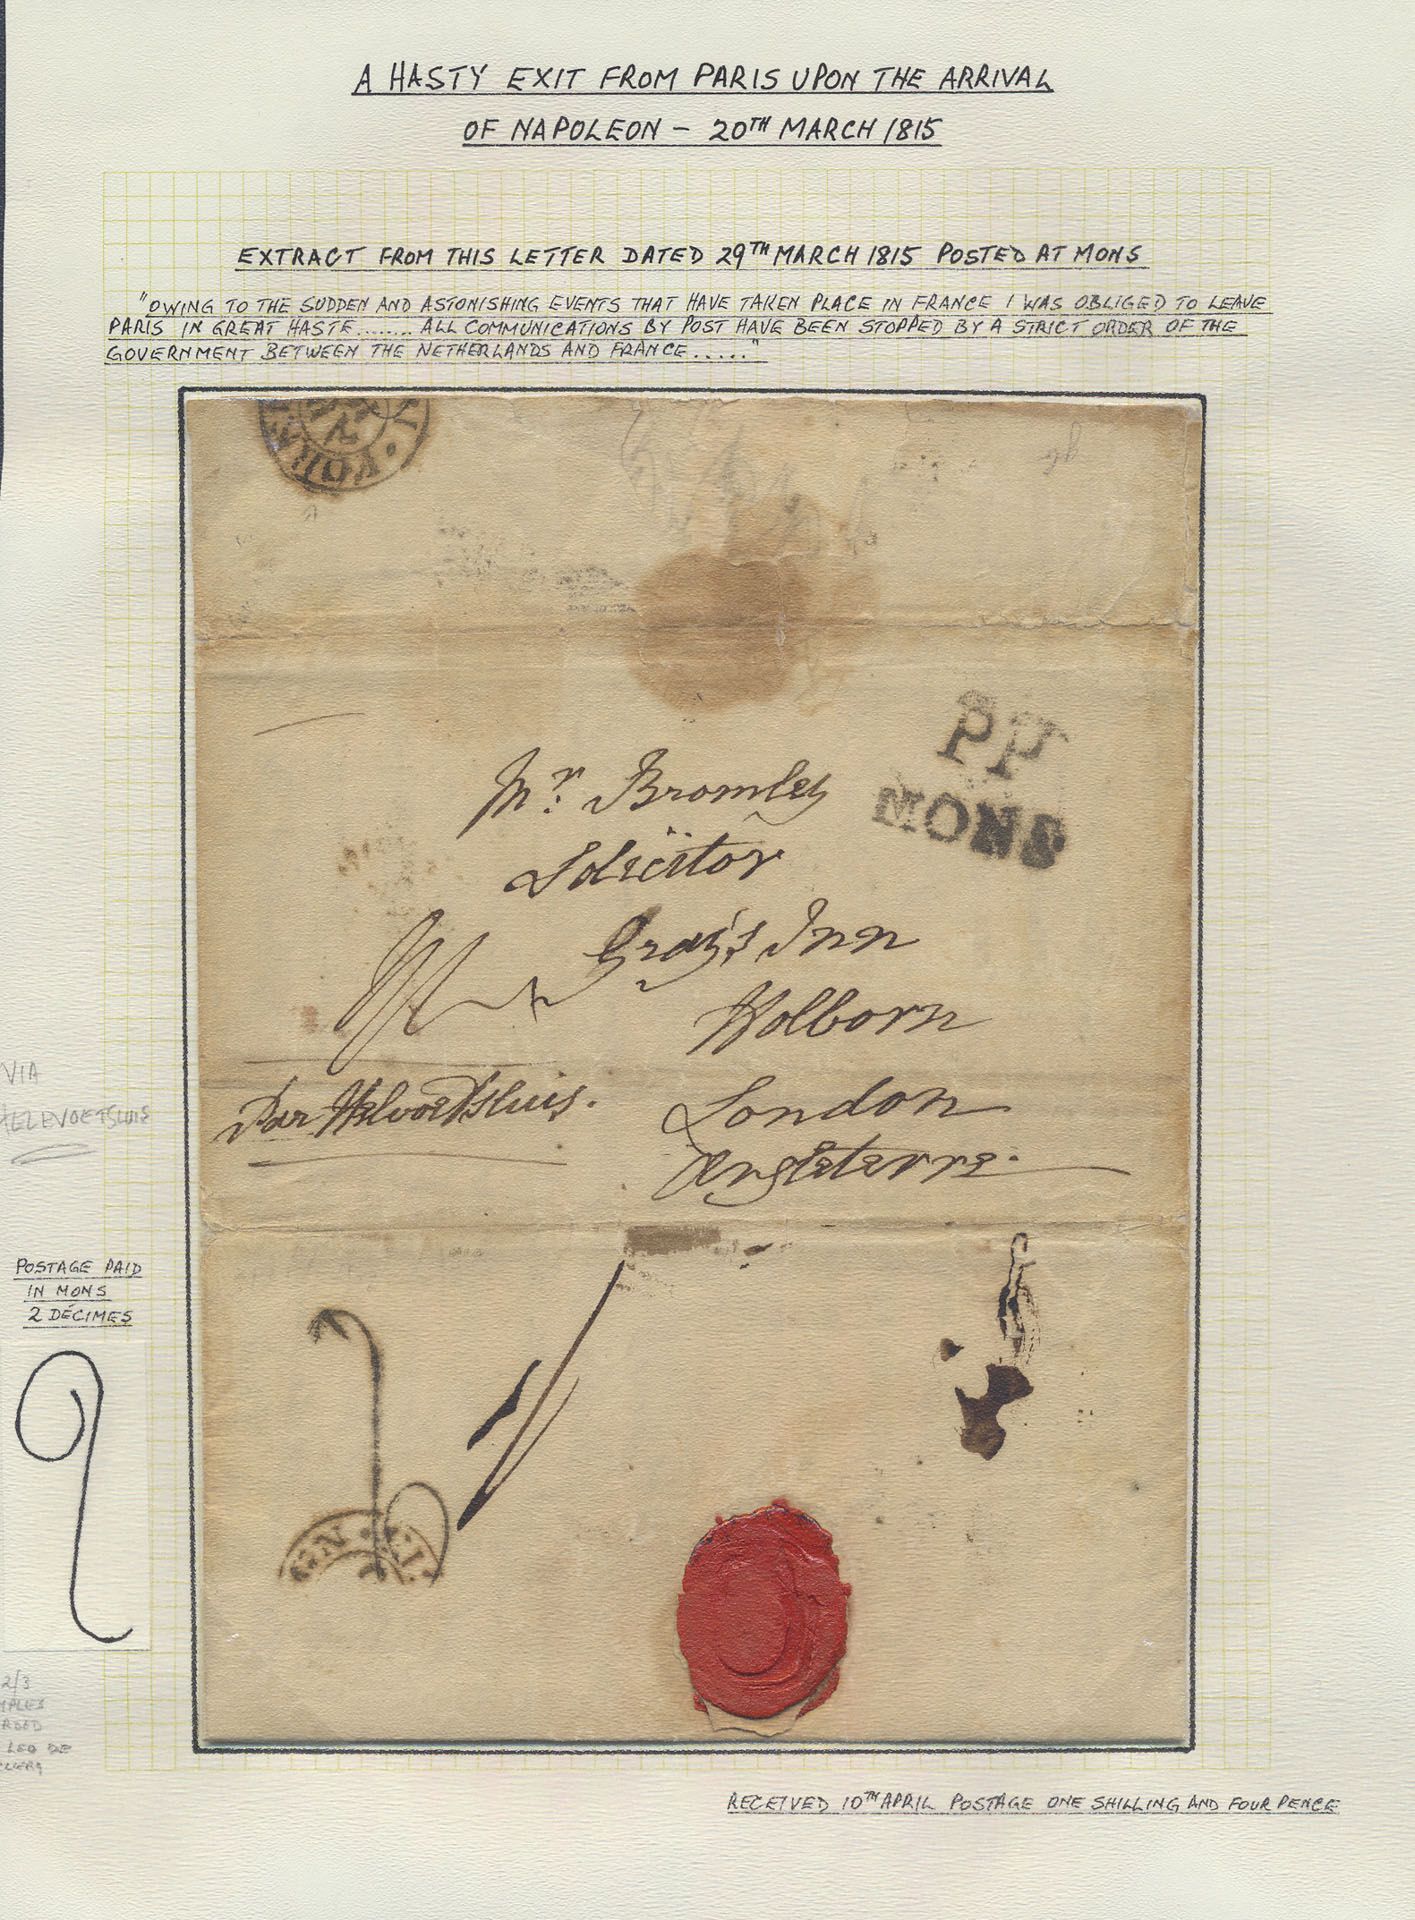 A HASTY EXIT FROM PARIS UPON THE ARRIVAL
OF NAPOLEON – 20TH MARCH 1815
EXTRACT FROM THIS LETTER DATED 29TH MARCH 1815 POSTED AT MONS
"OWING TO THE SUDDEN AND ASTONISHING EVENTS THAT HAVE TAKEN PLACE IN FRANCE I WAS OBLIGED TO LEAVE
PARIS IN GREAT HASTE........ ALL COMMUNICATIONS BY POST HAVE BEEN STOPPED BY A STRICT ORDER OF THE
GOVERNMENT BETWEEN THE NETHERLANDS AND FRANCE....."
PP
MONS
Mr. Bromley
Solicitor
Gray's Inn
Holborn
London
Angleterre.
Par Helvoetsluis.
VIA
HELLEVOETSLUIS
POSTAGE PAID
IN MONS
2 DÉCIMES
2/3
LEO DE
RECEIVED 10TH APRIL POSTAGE ONE SHILLING AND FOUR PENCE